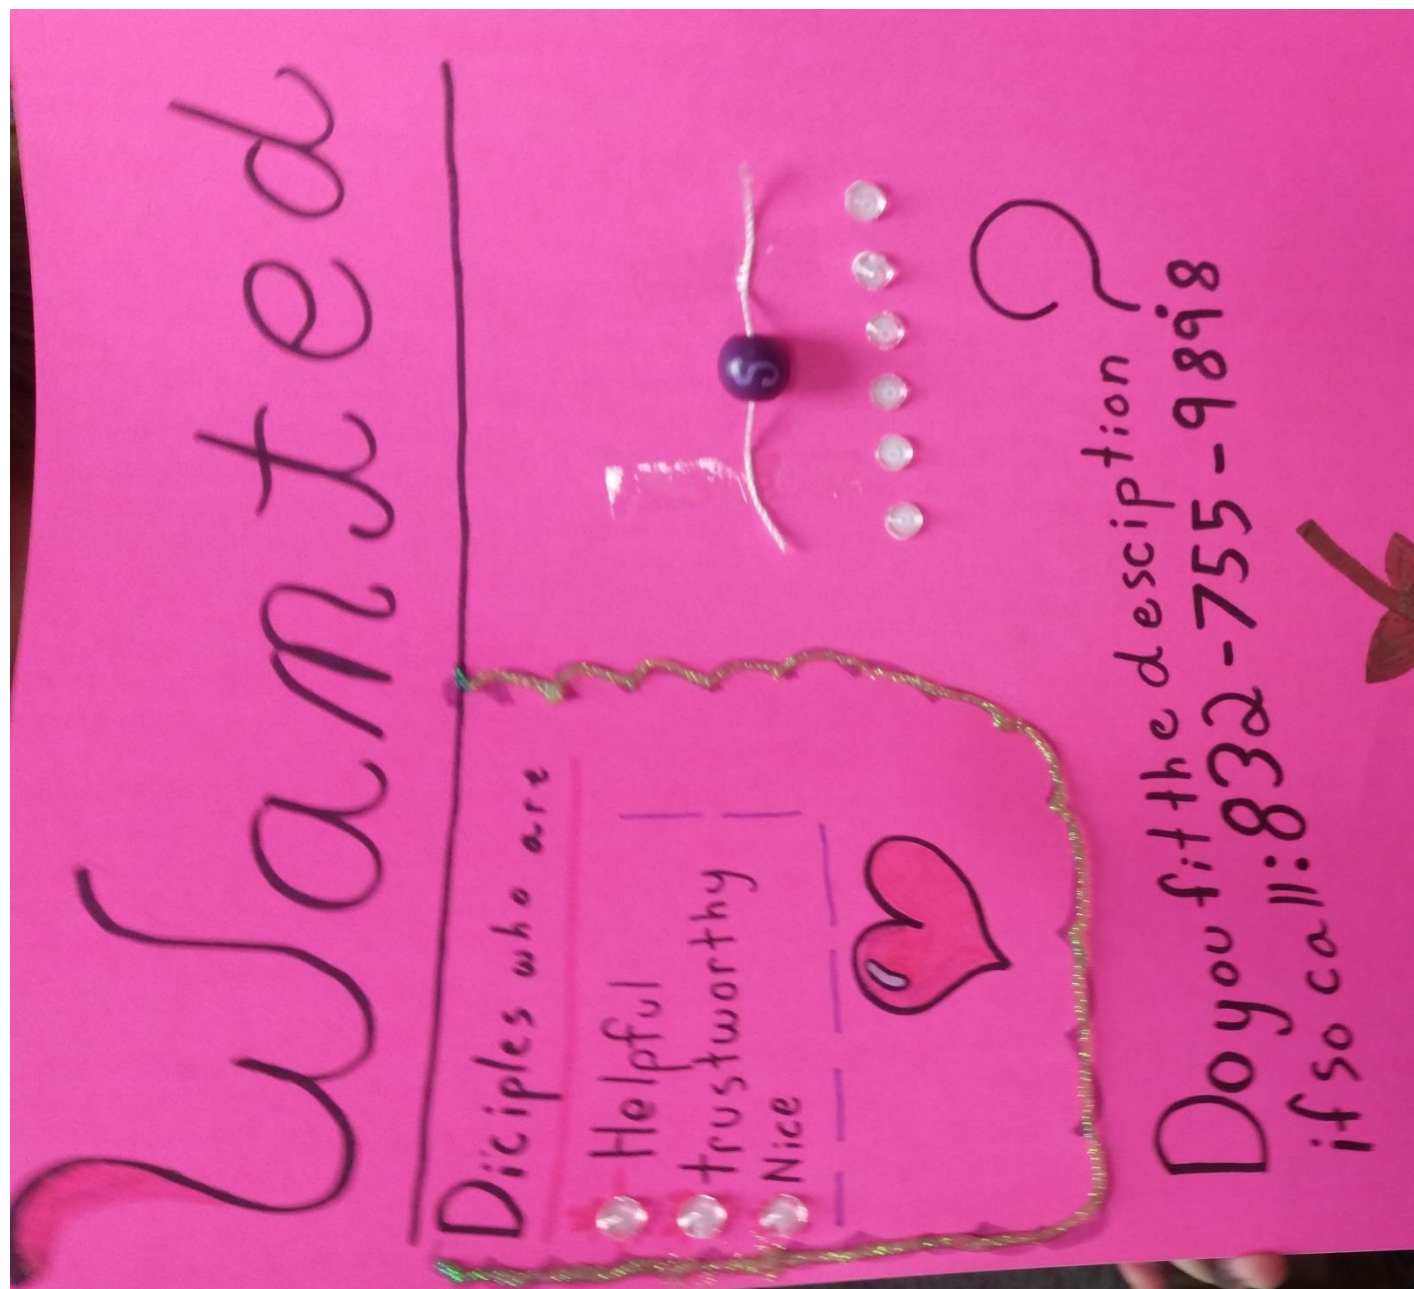 Wanted
Diciples who are
Helpful
trustworthy
Nice
S
Do you fit the desciption ?
if so call:832-755-9898